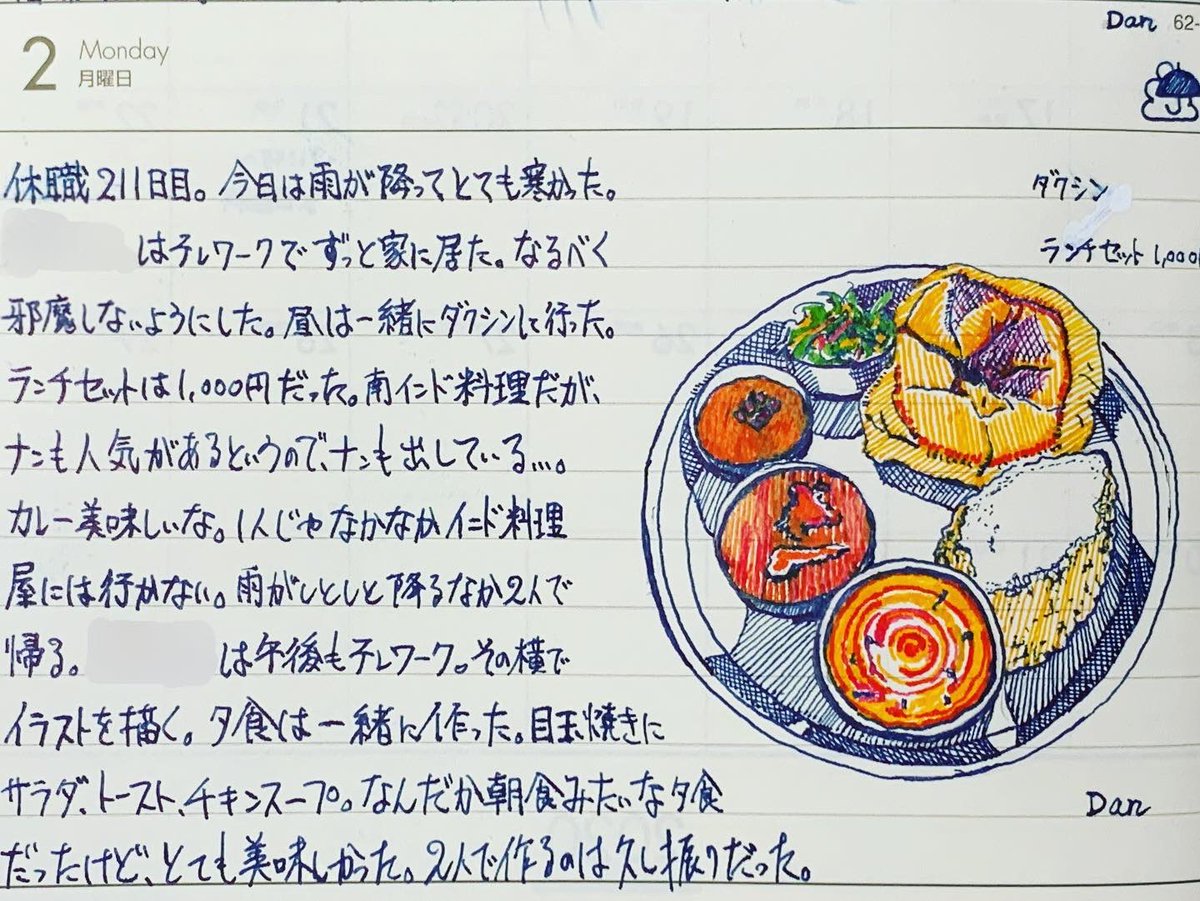 Dan 62-
2 Monday
月曜日
休職211日目。今日は雨が降ってとても寒かった。
ダクシン
はテレワークでずっと家に居た。なるべく
ランチセット 1,000
邪魔しないようにした。昼は一緒にダクシンに行った。
ランチセットは1,000円だった。南インド料理だが、
ナンも人気があるというので、ナンも出している...。
カレー美味しいな。1人じゃなかなかインド料理
屋には行かない。雨がしとしと降るなか2人で
帰る。
は午後もテレワーク。その横で
イラストを描く。夕食は一緒に作った。目玉焼きに
サラダ、トースト、チキンスープ。なんだか朝食みたいな夕食
Dan
だったけど、とても美味しかった。2人で作るのは久し振りだった。